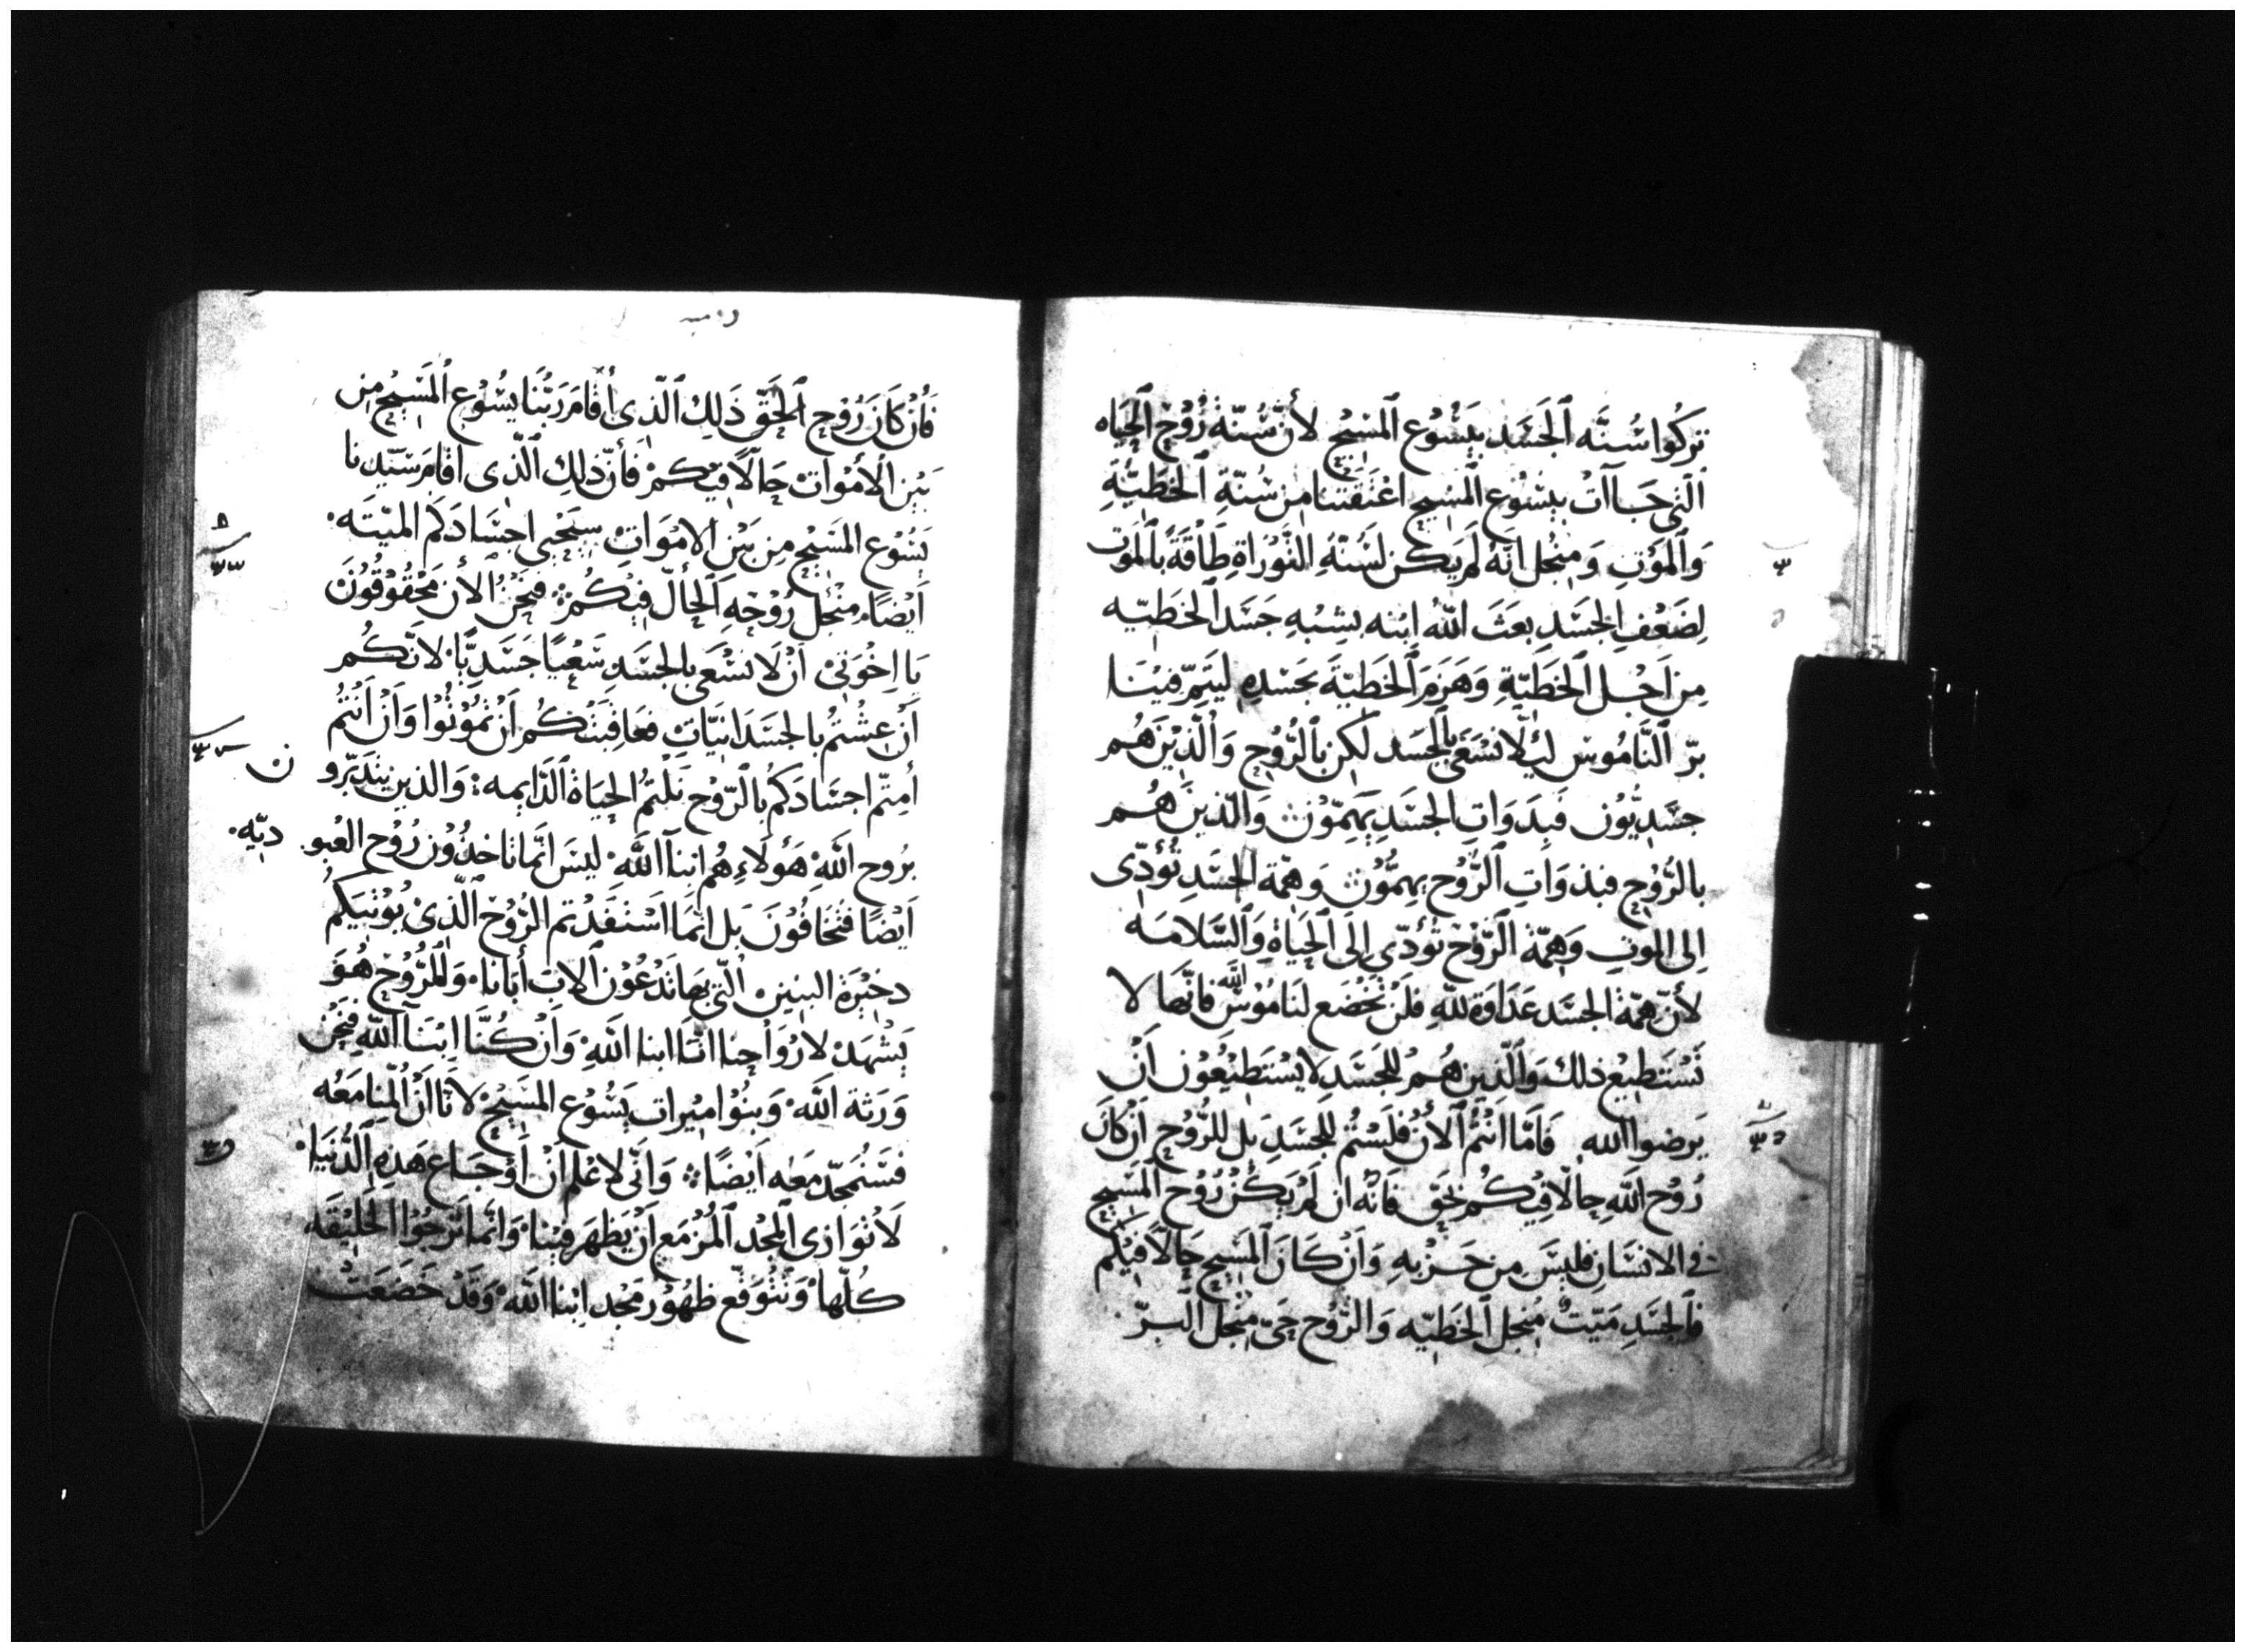 تركوا سُنَّه ٱلجَسَد بيَسُوُع ٱلمَسِيح لأنّ سُنّة رُوُحِ ٱلحَياه
ٱلتى جَاآت بيسُوُع ٱلمَسيحِ اعْتَقَتنا مِن سُنّةِ ٱلخَطيَّةِ
وَٱلمَوْتِ وَمنْجل انّهُ لَم يَكن لسُنّةِ التَّوْرَاةِ طَاقَةً بٱلمَوت
لِضَعْفِ الجَسَدِ بعَثَ اللهُ ابْنه بِشبْهِ جَسَد ٱلخَطيّه
مِن اَجْل ٱلخَطيّةِ وَهَزمَ ٱلخَطيّةَ بجَسْدهِ ليَتمّ فيْنَا
برّ ٱلنَّامُوس ليلا نَسْعَى بالجسَد لكِن بٱلرُّوحِ وَٱلّذِيْنَ هُم
جسَديُّوُن فَبِدَوَاتِ الجسَدِ يَهِمّوْن وَالّذينَ هُم
بالرُّوُحِ فبذوَاتِ ٱلرُّوُح يهِمُّوُن وَهمّة الجسَدِ تُؤدّى
الى الموتِ وَهِمّة الرّوْحْ تؤدّى الَى ٱلحَيَاةِ وَٱلسَّلامَه
لأنّ هِمّةَ الجسَد عَدَاوَة للّهِ فلَنْ تخْضَع لنَامُوْسْ اللّه فانّها لا
تَسْتَطيع ذلك وَٱلّذِين هُم للجَسَدِ لا يسْتَطيْعُوُن أنْ
يَرضوا الله فَامّا انْتُم ٱلأنْ فلَسْتُم للجسَدِ بل للرُّوُحِ اَنْ كانَ
رُوُح اللّه حالّا فيْكُم بَحقّ فانّه ان لمْ يَكُنْ رُوُح المَسيح
فى الانسَانِ فليسَ مِن حَزْبهِ وَاَنْ كَانَ ٱلمَسيح حَالّا فيْكم
فٱلجسَدِ مَيّت مُنجل ٱلخَطيّه وَالرّوُح حَىّ منْجل الّبرّ
فَأنْ كَانَ رُوْح ٱلحَقّ ذَلِك ٱلّذى أقَامَ رَبُّنَا يسُوُع ٱلمَسيْح مِن
بَيْن الأمْوَات حَالّا فيْكم فَأنّ ذلِك ٱلّذى اقَامَ سَيّدنا
يَسُوُع المَسيْح مِن بَيْن الامْوَات سيُحْيى اجسَادَكم الميّتَه
اَيْضًا منْجل رُوْحهِ اَلحَالّ فيْكُم فنَحْنُ ٱلأن مَحْقُوقُونَ
يا اِخْوَتى انْ لا نسْعَى بالجسَدِ سَعْيًا جَسَديًّا لانّكُم
اَنْ عِشْتم بالجسَدَانيَّاتِ فعَاقبَتكُم اَنْ تمُوُتُوا وَاَنْ اَنْتُم
أمتّم اجسَادَكمُ بالرّوْح نَلْتُم الحيَاة ٱلدّايمه وَالذين يتدَبّرو ن
برُوح اللّهْ هَؤلاءِ هُم ابنآ اللهْ ليسَ انّما تاخذُوْن رُوْح العُبو ديّه
اَيْضًا فتُخَافُوْنَ بَل انّمَا اسْتفَدْتم الرُّوْح ٱلّذى يُؤتيكم
دخيْرَة البنين الّتى بهَا تَدْعُوْن ٱلابَ أبَانا وَٱلرُّوُحْ هُوَ
يَشْهَدْ لارْوَاحِنا انَّنا ابنا اللهْ وَاَنْ كُنَّا ابْنَآ اللّهِ فنَحْنُ
وَرَثة اللَّهْ وَبنُوْا ميْرات يَسُوُع المَسيْحْ لانّا اَنْ أَلمنا مَعْه
فسَنُمجّد مَعَه اَيْضًا وَانّى لاعْلَم اَنْ أَوْجَاع هَذِه ٱلدُّنيَا
لا تُوَازى ٱلمجْد ٱلمُزْمَع اَنْ يَظهَر فيْنا وَانّما تَرْجُوْا ٱلخَليْقَه
كُلّها وَتتْوَقّع ظهُوْر مَجْد ابْنا اللّهْ وَقَدْ خَضَعَتْ